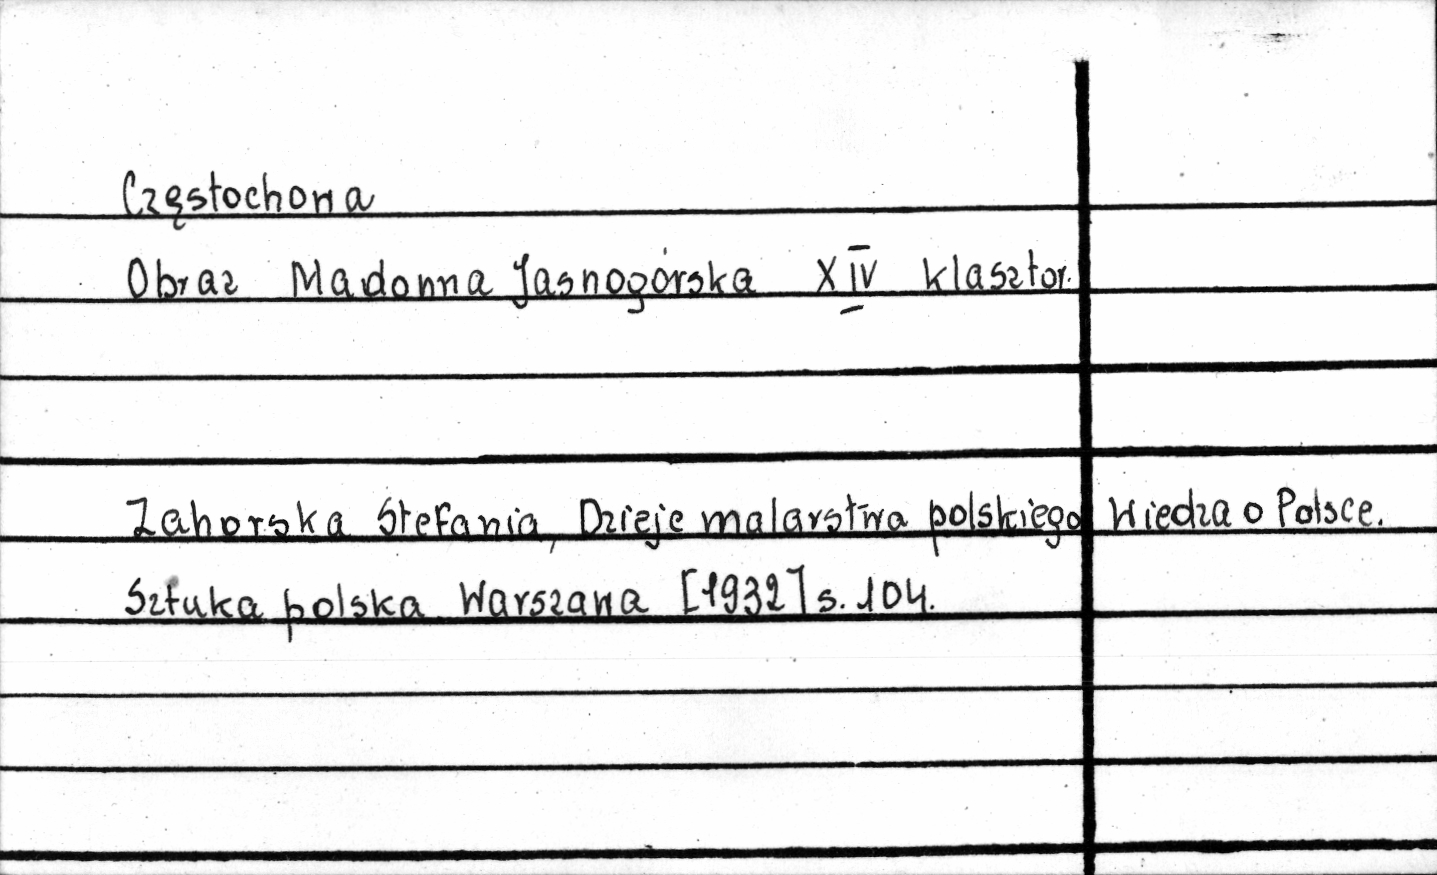 Częstochowa
Obraz Madonna Jasnogórska XIV klasztor.
Zahorska Stefania, Dzieje malarstwa polskiego Wiedza o Polsce.
Sztuka polska Warszawa [1932] s. 104.